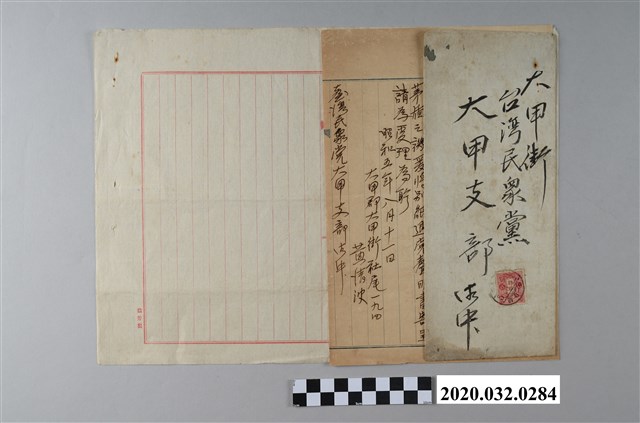 大甲街
台湾民眾黨
大甲支部 御中
請為受理為盼
昭和五年八月十一日
大甲郡大甲街社尾一九四
黃清波
台湾民眾党大甲支部 御中
2020.032.0284